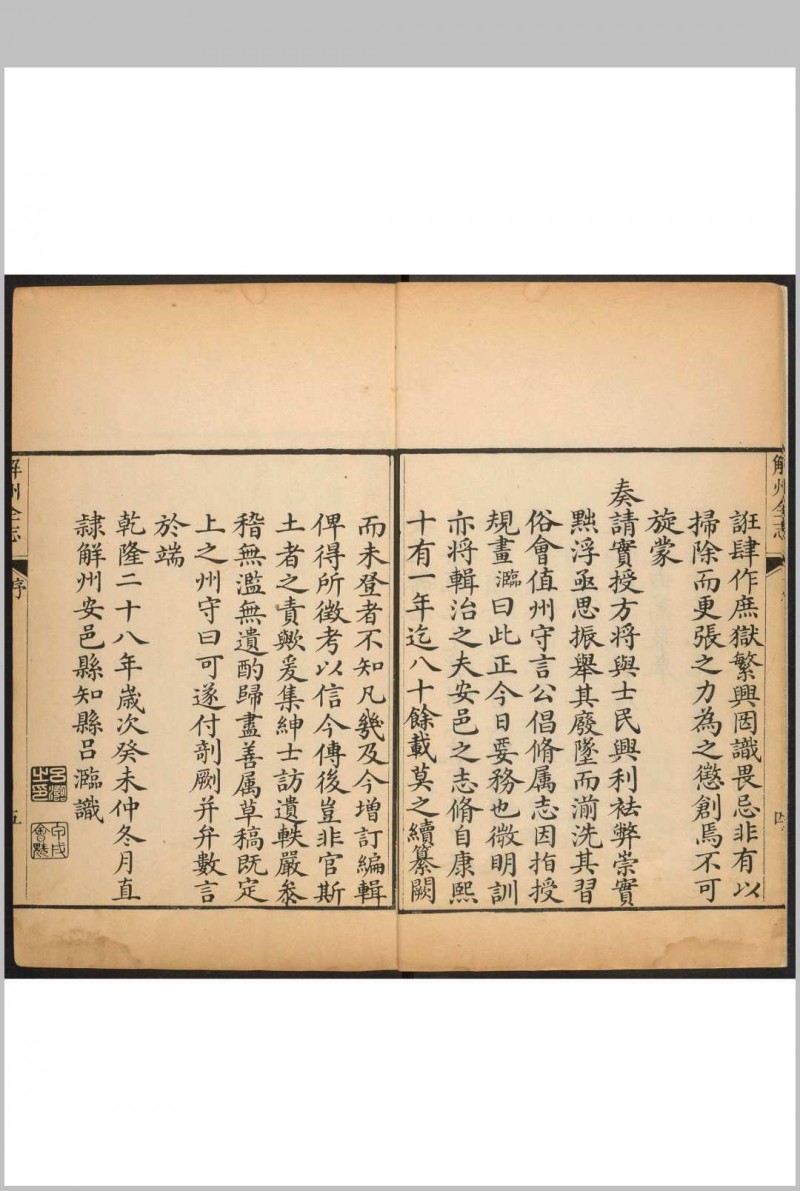 解州全志
四
誑肆作庶獄繁興罔識畏忌非有以
掃除而更張之力為之懲創焉不可
旋蒙
奏請實授方將與士民興利祛弊崇實
黜浮亟思振舉其廢墜而湔洗其習
俗會值州守言公倡脩属志因指授
規畫灜曰此正今日要務也微明訓
亦将輯治之夫安邑之志脩自康熙
十有一年迄八十餘載莫之續纂闕
而未登者不知凡幾及今增訂編輯
俾得所徵考以信今傳後豈非官斯
土者之責歟爰集紳士訪遺軼嚴叅
稽無濫無遺酌歸盡善属草稿既定
上之州守曰可遂付剞劂并弁數言
於端
乾隆二十八年歲次癸未仲冬月直
隸解州安邑縣知縣呂灜識
解州全志
序
五